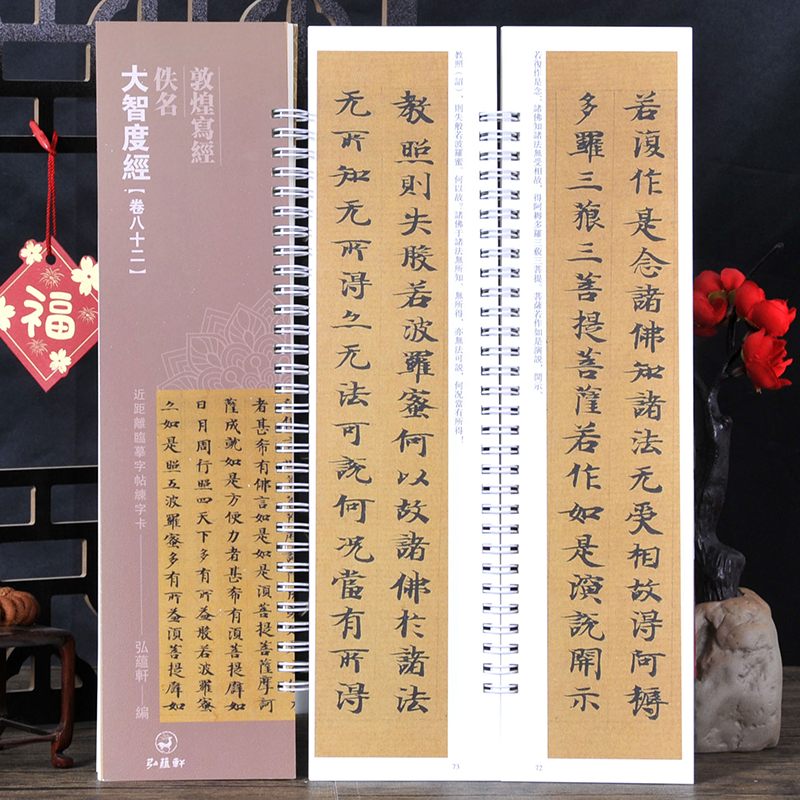 福
敦煌寫經
佚名
大智度經【卷八十二】
者甚希有佛言如是如是須菩提菩薩摩訶
薩成就如是方便力者甚希有須菩提辟如
日月周行照四天下多有所益般若波羅蜜
亦如是照五波羅蜜多有所益須菩提辟如
近距離臨摹字帖練字卡
弘蘊軒 編
弘蘊軒
若復作是念：諸佛知諸法無受相故，得阿耨多羅三藐三菩提，菩薩若作如是演說、開示、
若復作是念諸佛知諸法无受相故得阿耨
多羅三藐三菩提菩薩若作如是演說開示
72
教照（詔），則失般若波羅蜜。何以故。諸佛于諸法無所知，無所得，亦無法可說，何況當有所得！
教照則失般若波羅蜜何以故諸佛於諸法
无所知无所得亦无法可說何況當有所得
73